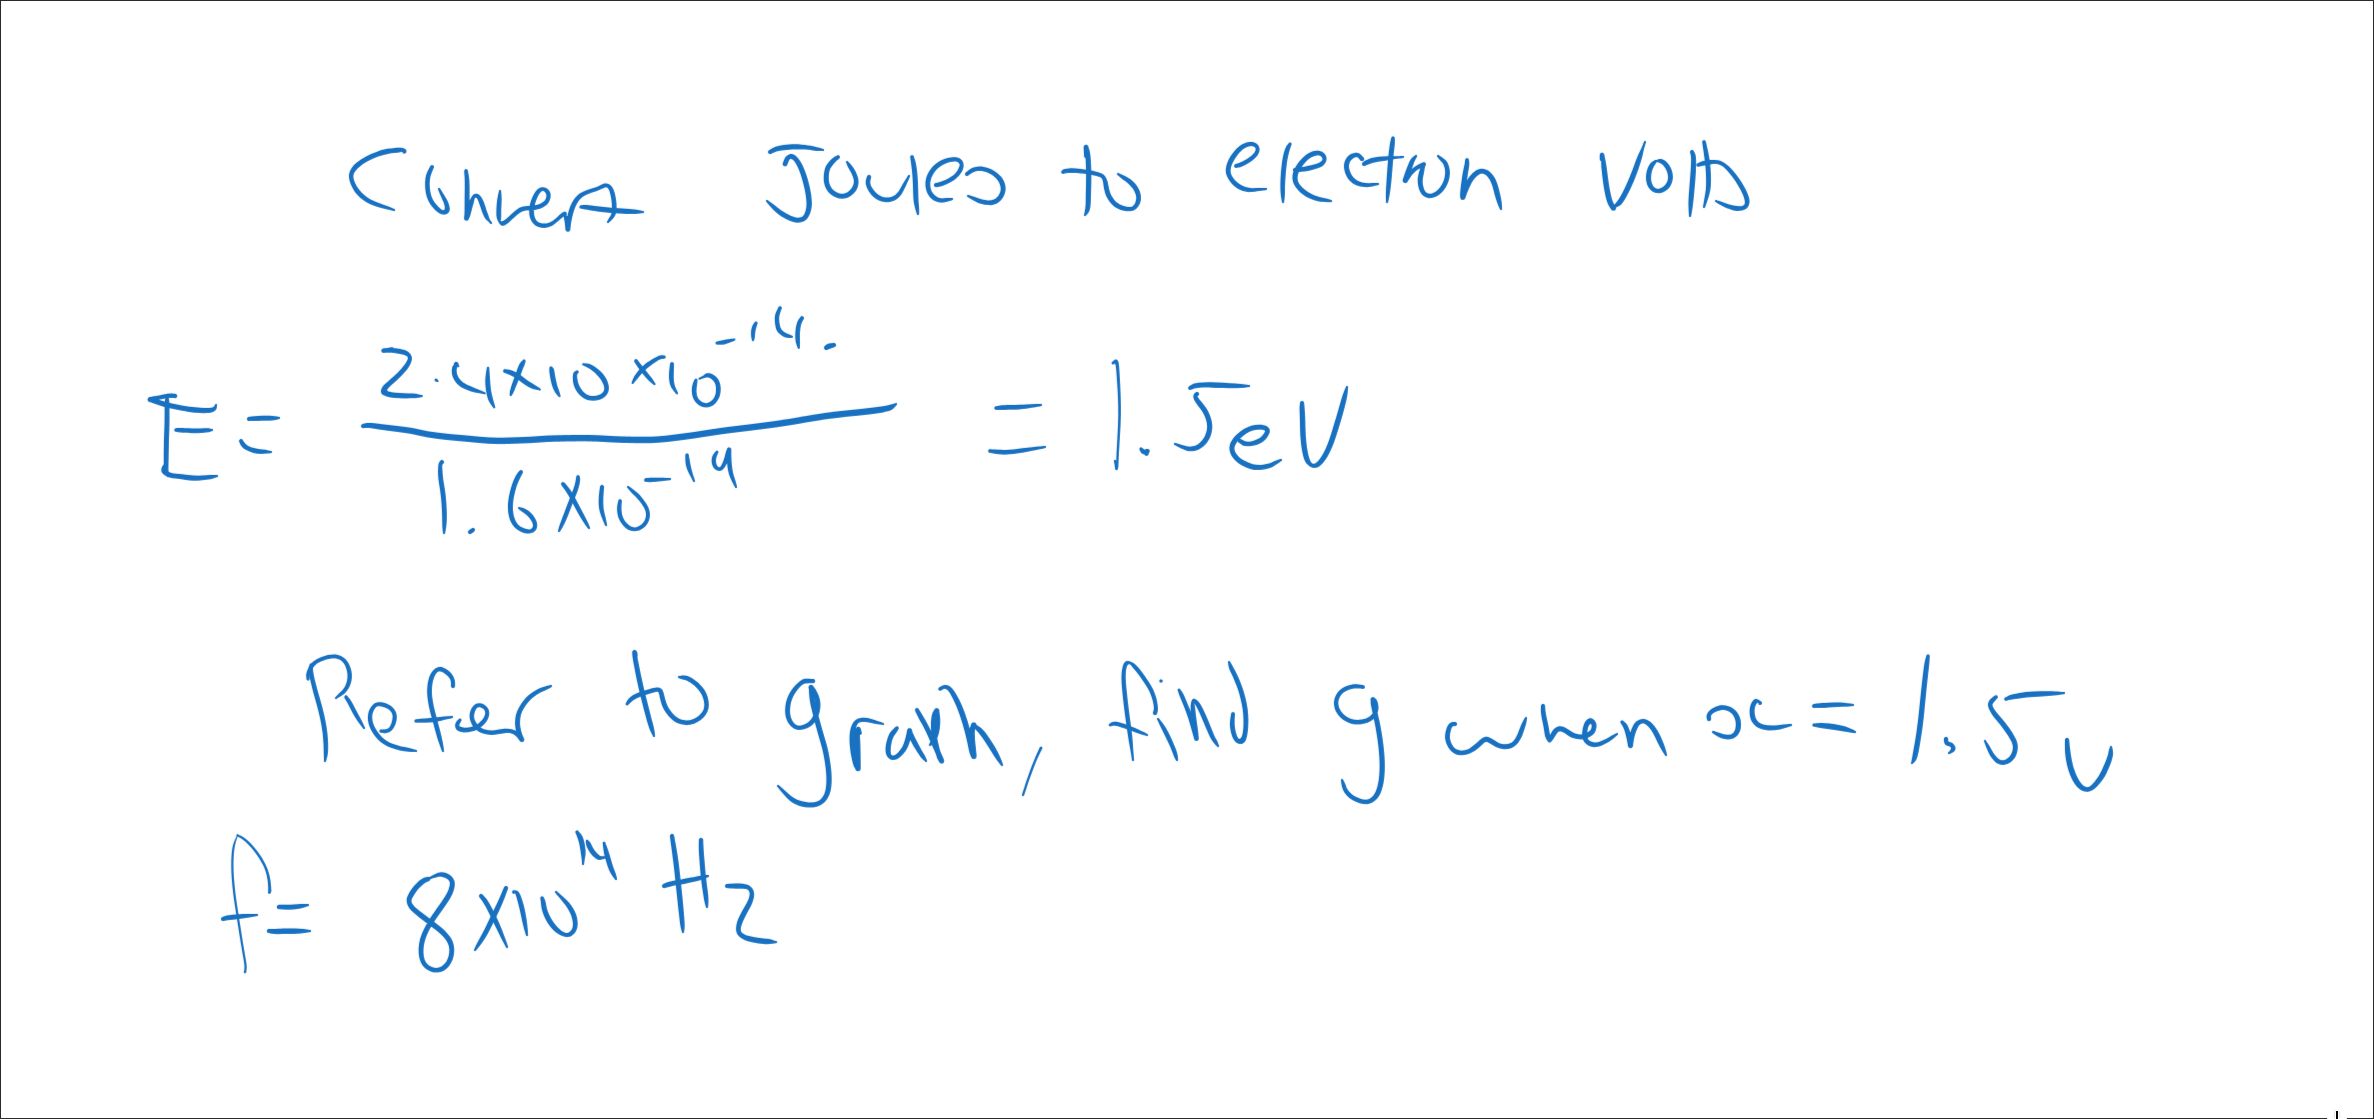 Convert Joules to electron Volts
2.4x10 x10^-19.
E= ————— = 1.5eV
1.6x10^-19
Refer to graph, find y when x = 1.5V
f= 8x10^14 Hz